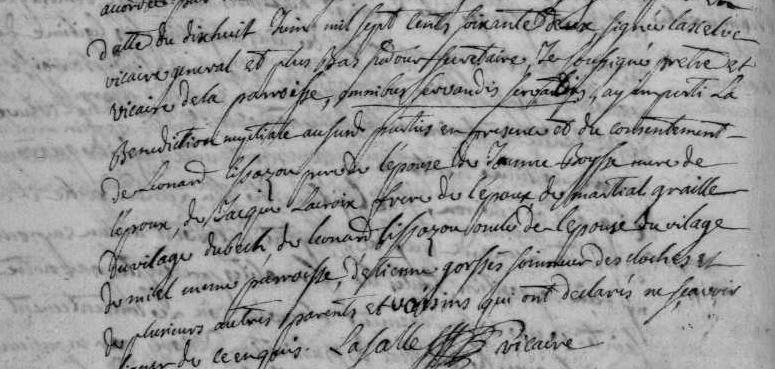 accordée pour
datte du dixhuit Juin mil sept cents soixante deux, signée
vicaire general et plus Bas secretaire, Je soussigné pretre et
vicaire dela parroisse, omnibus servandis servatis, ay imparti La
Benediction nuptiale ausurd parties en presence et du consentement
de Leonard pere de l'epouse, de Jeanne Boysse mere de
l'epoux, de Jacque Lacroix frere de l'epoux de martial graille
du vilage dubech, de leonard oncle de l'epouse du vilage
de miel meme parroisse, d'etienne gorsses sonneur des cloches et
de plusieurs autres parents et voisins qui ont declarés ne sçavoir
signer de ce enquis. Lasalle vicaire